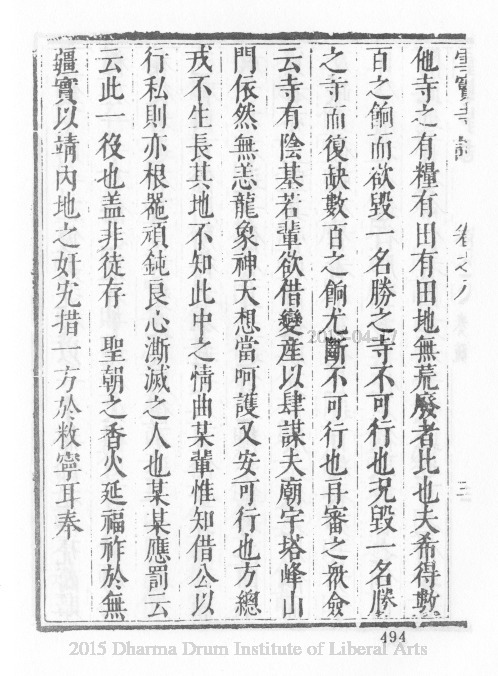 雪竇寺誌 卷之八 三
他寺之有糧有田有田地無荒廢者比也夫希得數
百之餉而欲毀一名勝之寺不可行也况毀一名勝
之寺而復缺數百之餉尤斷不可行也再審之衆僉
云寺有陰基若輩欲借變産以肆謀夫廟宇塔峰山
門依然無恙龍象神天想當呵護又安可行也方總
戎不生長其地不知此中之情曲某輩惟知借公以
行私則亦根噐頑鈍良心澌滅之人也某某應罰云
云此一役也盖非徒存 聖朝之香火延福祚於無
疆實以靖內地之奸宄措一方於敉寧耳奉
494
2015 Dharma Drum Institute of Liberal Arts